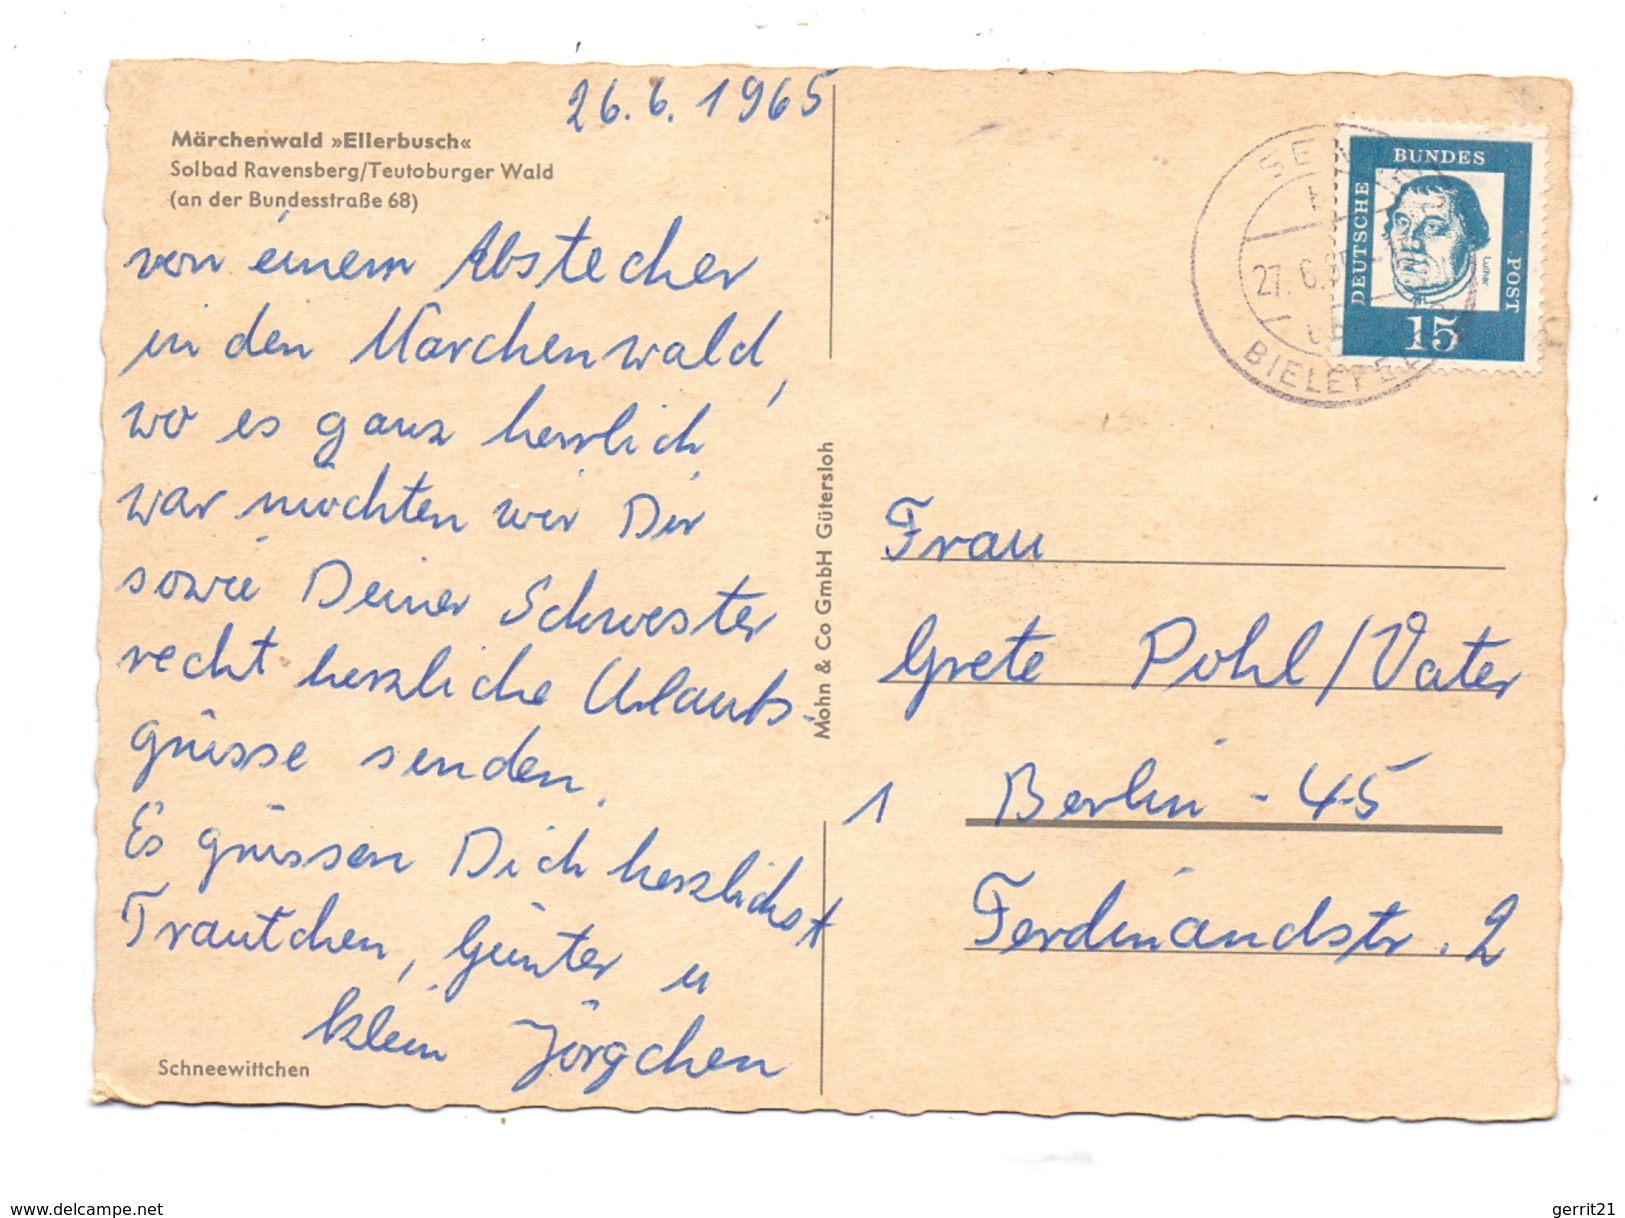 26.6.1965
Märchenwald »Ellerbusch«
Solbad Ravensberg/Teutoburger Wald
(an der Bundesstraße 68)
von einem Abstecher
in den Märchenwald,
wo es ganz herrlich
war möchten wir Dir
sowie Deiner Schwester
recht herzliche Urlaubs-
grüsse senden.
Es grüssen Dich herzlichst
Trautchen, Günter u
klein Jörgchen
Schneewittchen
Mohn & Co GmbH Gütersloh
DEUTSCHE
BUNDES
POST
Luther
15
27.6.65
BIELEFELD
Frau
Grete Pohl/Vater
1 Berlin-45
Ferdinandstr. 2
www.delcampe.net
gerrit21